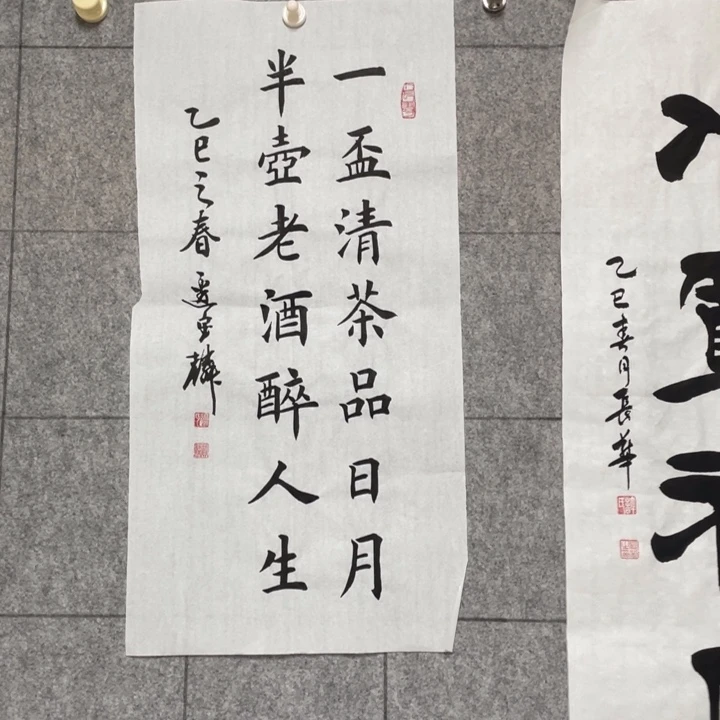 一盃清茶品日月
半壺老酒醉人生
乙巳之春
乙巳春月長華